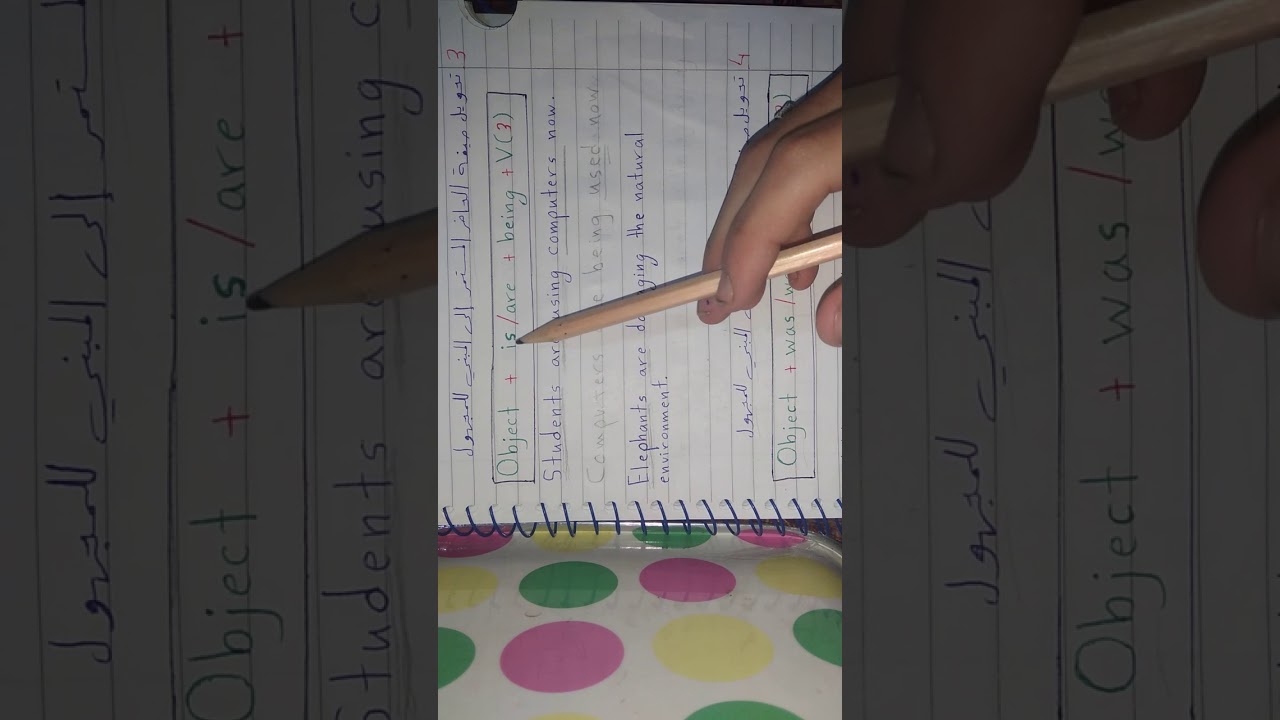 3 تحويل صيغة الحاضر المستمر إلى المبني للمجهول
Object + is/are + being + V(3)
Students are using computers now.
Computers being used now
Elephants are ging the natural
environment.
4 تحويل المبني للمجهول
Object + was/